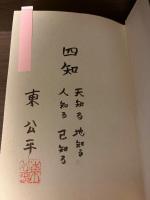 四知
天知る 地知る
人知る 己知る
東公平